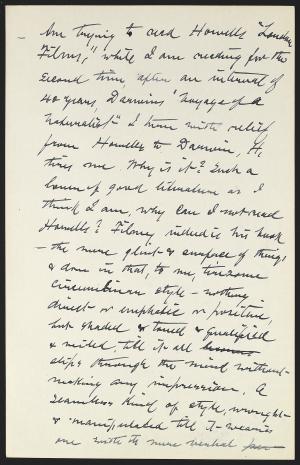 Am trying to read Howells "London
Films," while I am reading for the
second time, after an interval of
40 years, Darwins' "Voyage of a
Naturalist" I turn with relief
from Howells to Darwin, H,
tires me. Why is it? Such a
lover of good literature as I
think I am, why can I not read
Howells? Filmy indeed is his book
– the mere glint & surface of things
& done in that, to me, tiresome
circumlinear style – nothing
direct or emphatic or positive,
but shaded & toned & qualified
& milled, till it all
slips through the mind without
making any impression. A
seamless kind of style, wrought
& manipulated till it wearies
one with the mere verbal